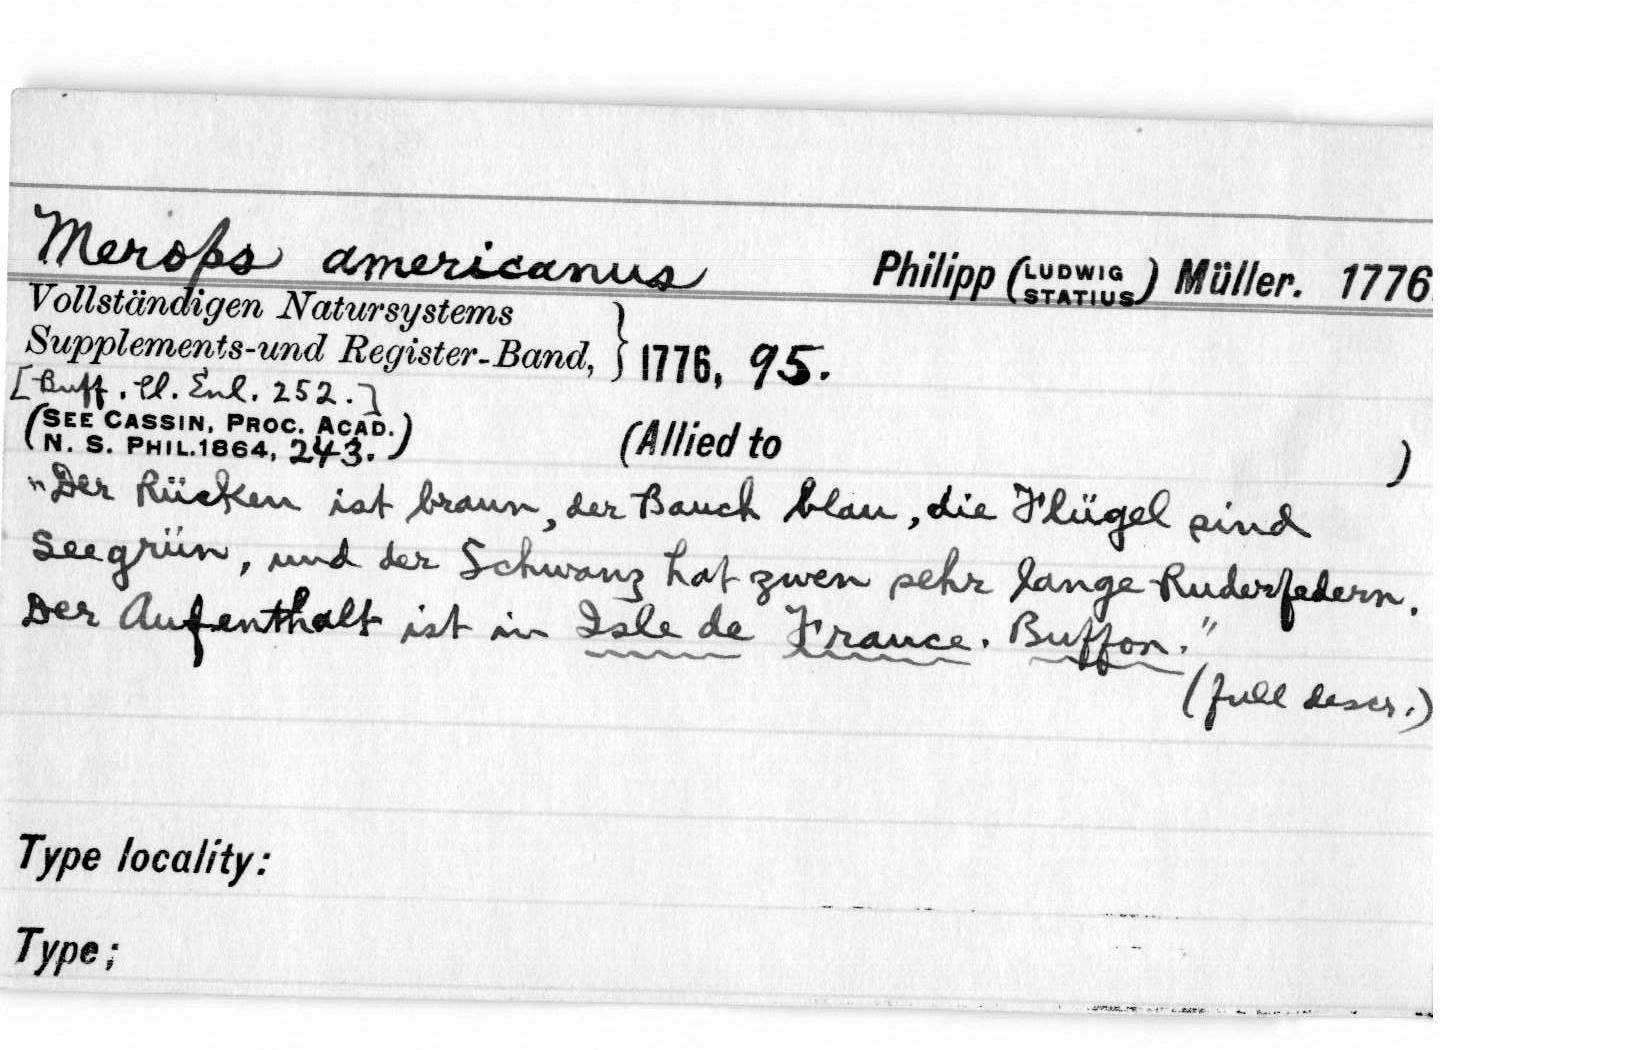 Merops americanus Philipp (LUDWIG STATIUS) Müller. 1776.
Vollständigen Natursystems
Supplements-und Register-Band, } 1776, 95.
[Buff. Pl. Enl. 252.]
(SEE CASSIN, PROC. ACAD.
N. S. PHIL. 1864, 243.) (Allied to )
"Der Rücken ist braun, der Bauch blau, die Flügel sind
Seegrün, und der Schwanz hat zwen sehr lange Ruderfedern.
Der Aufenthalt ist in Isle de France. Buffon."
(full descr.)
Type locality:
Type;